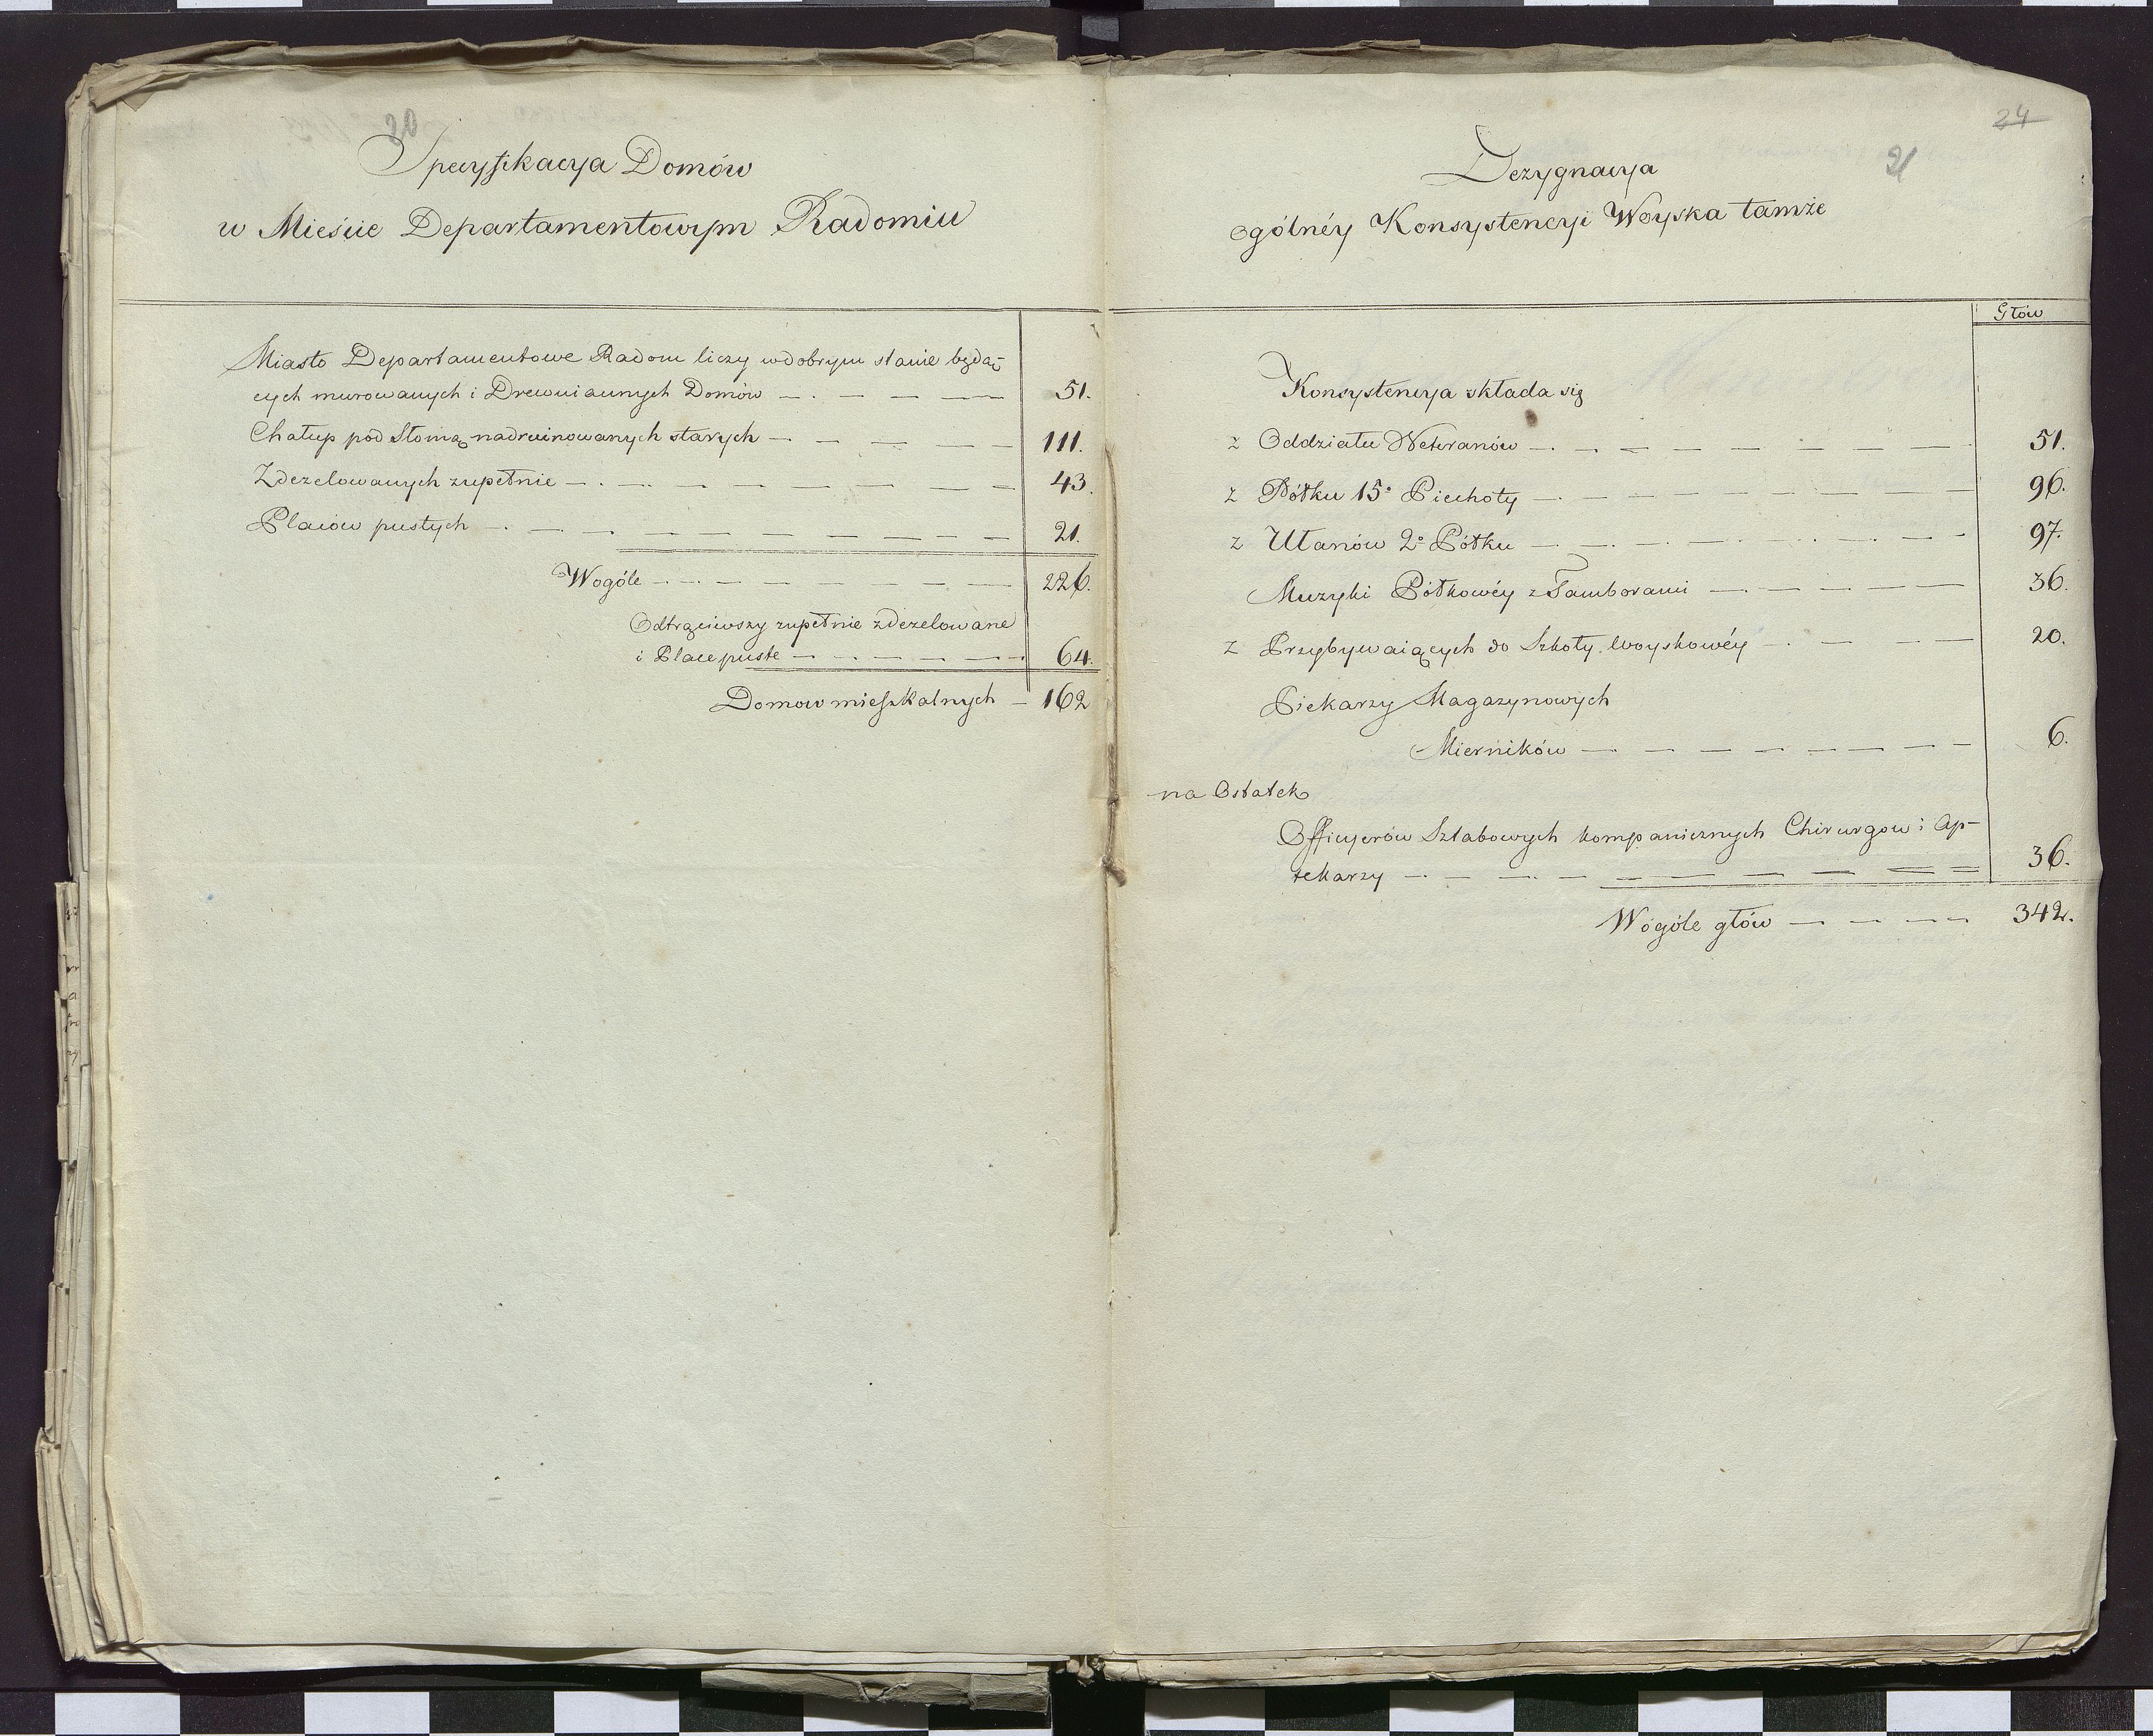 20
Specyfikacya Domów
w Mieście Departamentowym Radomiu
Miasto Departamentowe Radom liczy w dobrym stanie będą-
cych murowanych i Drewnianych Domów — 51.
Chałup pod Słomą nadruinowanych starych — 111.
Zdezelowanych zupełnie — 43.
Placow pustych — 21.
Wogóle — 226.
Odtrąciwszy zupełnie zdezelowane
i Place puste — 64.
Domow mieszkalnych — 162
24
21
Dezygnacya
ogólnéy Konsystencyi Woyska tamże
Głów
Konsystencya składa się
z Oddziału Weteranów — 51.
z Półku 15º Piechoty — 96.
z Ułanów 2º Półku — 97.
Muzyki Półkowéy z Tamborami — 36.
z Przybywaiących do Szkoły woyskowéy — 20.
Piekarzy Magazynowych
Mierników — 6.
na Ostatek
Officyerów Sztabowych kompanicznych Chirurgow i Ap-
tekarzy — 36.
Wogóle głów — 342.